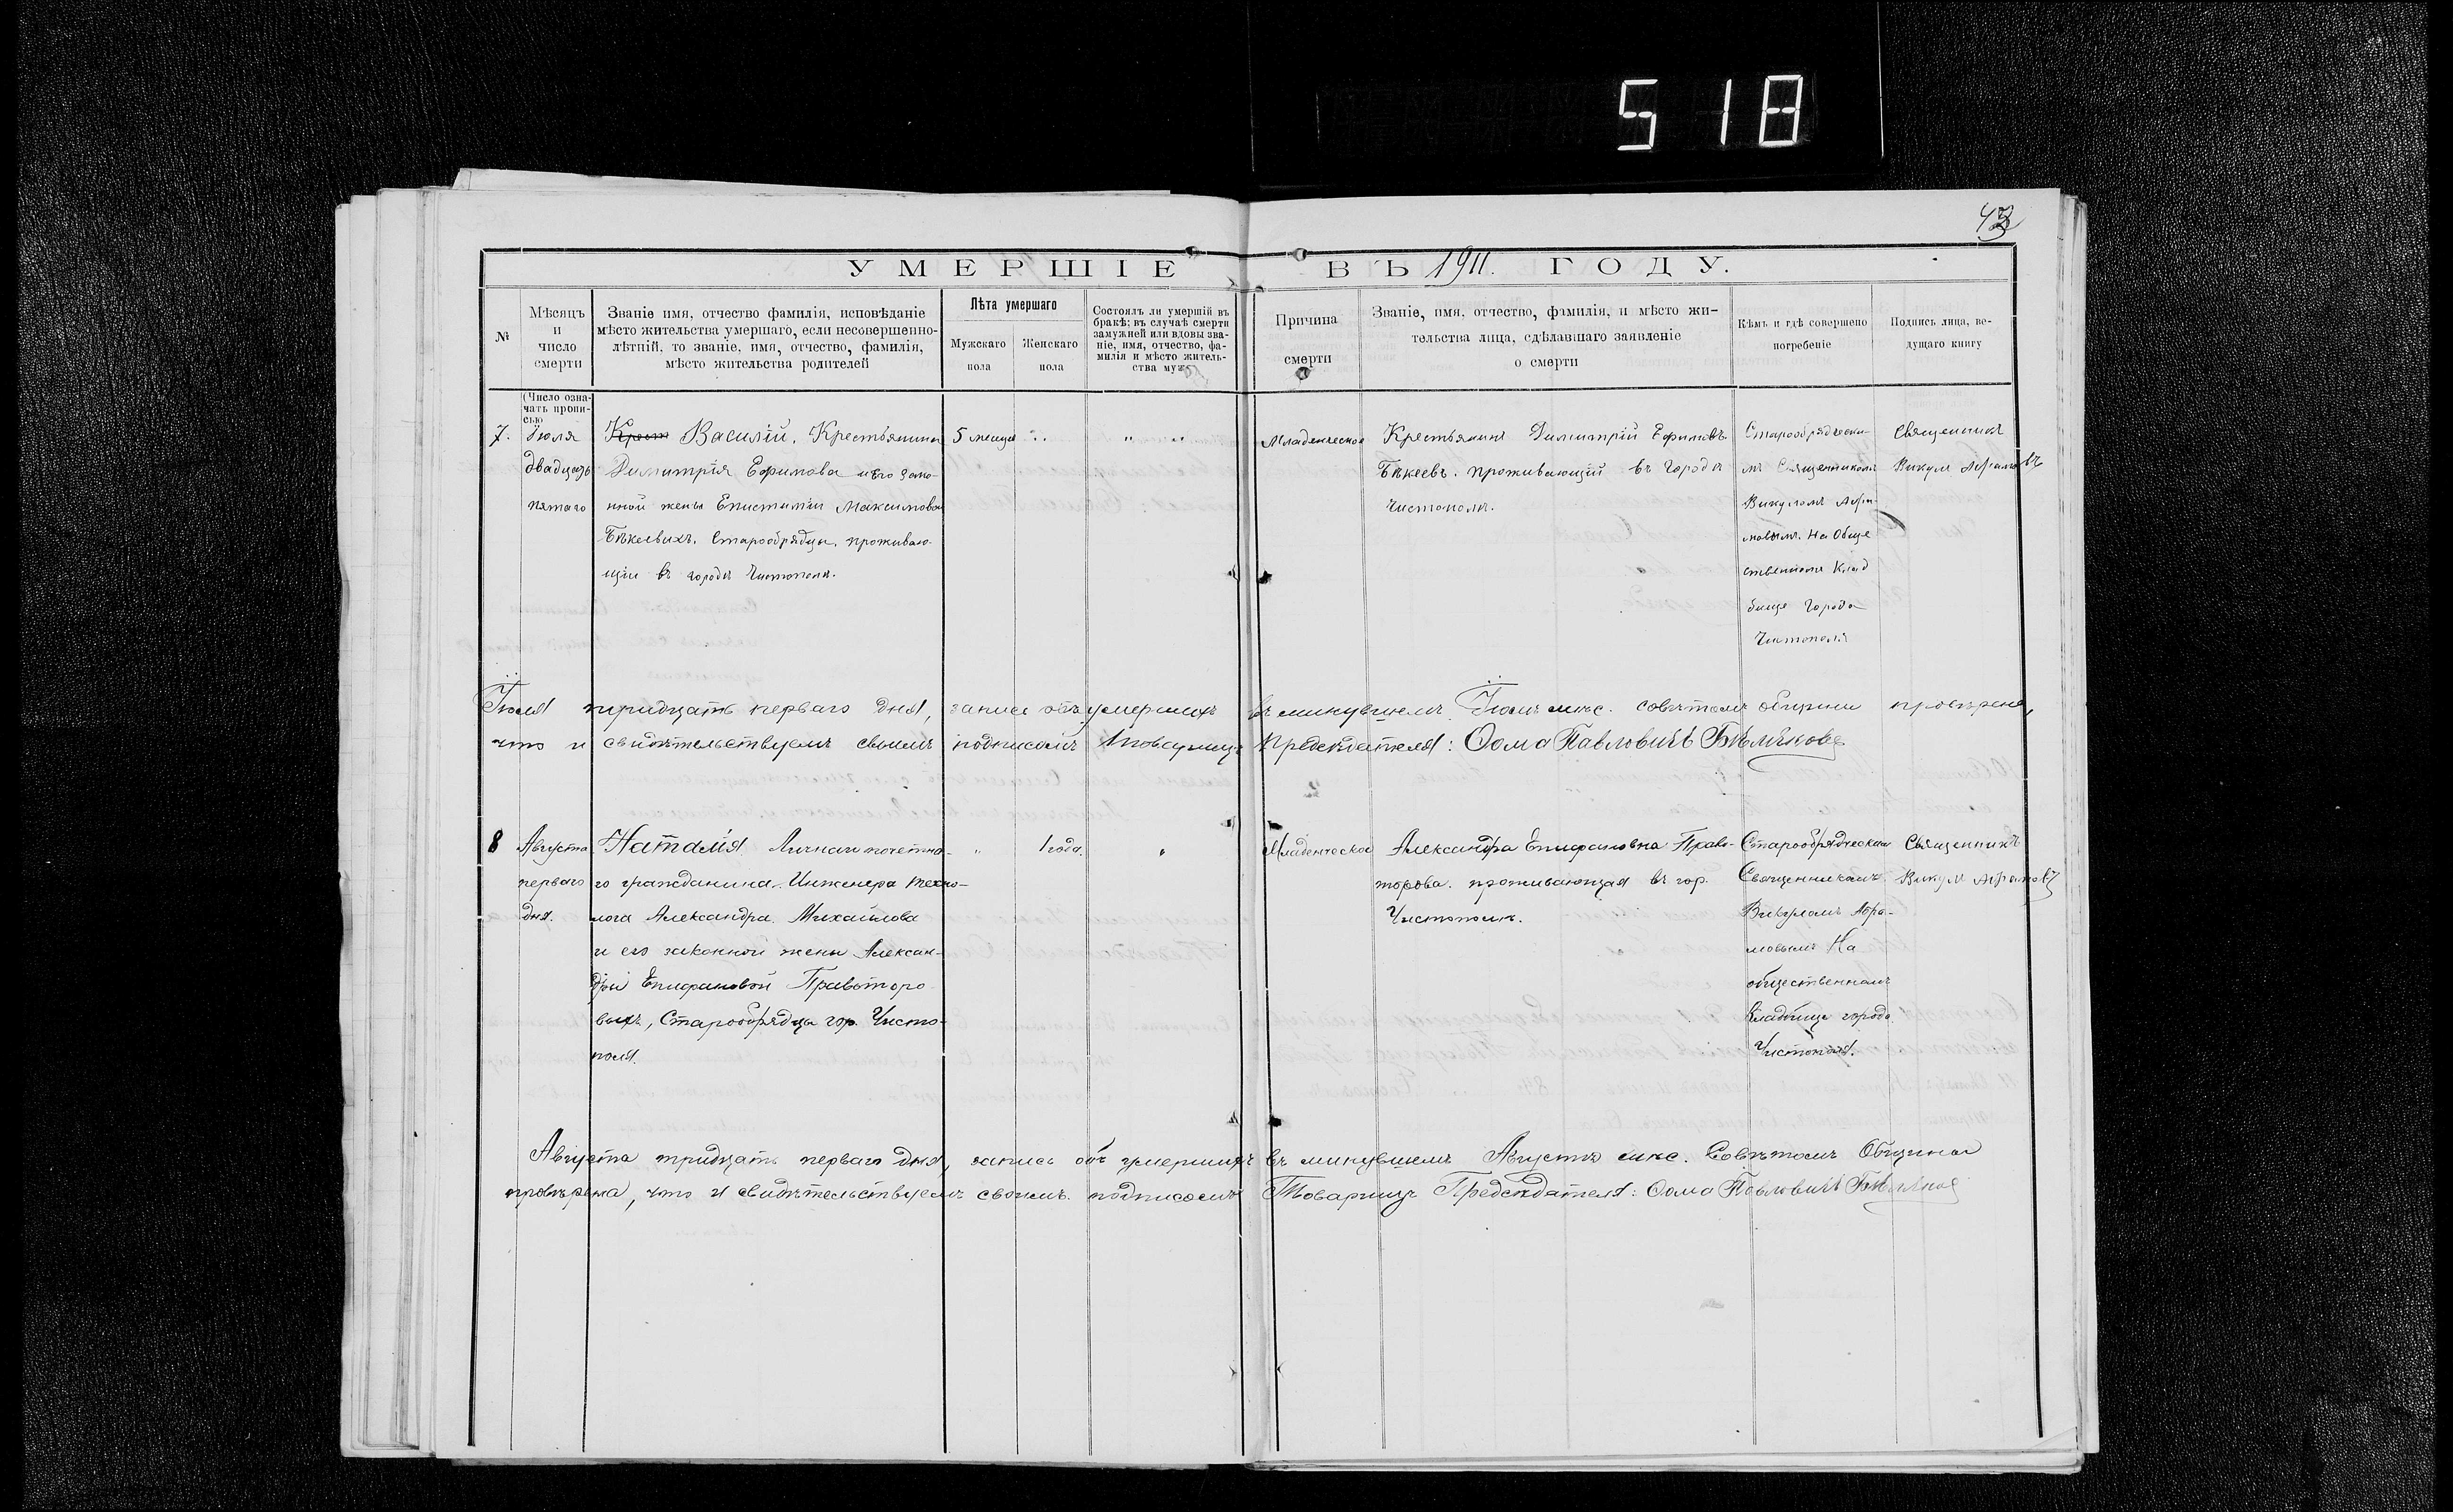 518
43
УМЕРШІЕ ВЪ 1911. ГОДУ.
№
Мѣсяцъ
и
число
смерти
Званіе имя, отчество фамилія, исповѣданіе
мѣсто жительства умершаго, если несовершенно-
лѣтній, то званіе, имя, отчество, фамилія,
мѣсто жительства родителей
Лѣта умершаго
Мужскаго
пола
Женскаго
пола
Состоялъ ли умершій въ
бракѣ; въ случаѣ смерти
замужней или вдовы зва-
ніе, имя, отчество, фа-
милія и мѣсто житель-
ства мужа
Причина
смерти
Званіе, имя, отчество, фамилія, и мѣсто жи-
тельства лица, сдѣлавшаго заявленіе
о смерти
Кѣмъ и гдѣ совершено
погребеніе
Подпись лица, ве-
дущаго книгу
(Число озна-
чать пропи-
сью
7.
Іюля
двадцать
пятаго
Крест Василій, Крестьянина
Димитрія Ефимова и его зако-
нной жены Епистиміи Максимовой
Бѣкеевыхъ. Старообрядцы, проживаю-
щіи въ городѣ Чистополѣ.
5 месяце
Младенческое
Крестьянинъ Димитрій Ефимовъ
Бѣкеевъ. проживающій въ городѣ
Чистополѣ.
Старообрядчески-
мъ Священникомъ
Викуломъ Абра-
мовымъ. На Обще
ственномъ Клад
бище города
Чистополя
Священникъ
Викулъ Абрамовъ
Іюля тридцать перваго дня, запись объ умершихъ въ минувшемъ Іюлѣ мѣс. совѣтомъ общины провѣрена,
что и свидѣтельствуемъ своимъ подписомъ Товарищъ Предсѣдателя: Ѳома Павловичъ
8
Августа
перваго
дня.
Наталія Личнаго почетна-
го гражданина. Инженера техно-
лога Александра Михайлова
и его законной жены Алексан-
дры Епифановой Правоторо
выхъ, Старообрядцы гор. Чисто-
поля.
1 года.
Младенческое
Александра Епифановна Право-
торова. проживающая въ гор.
Чистополѣ.
Старообрядческим
Священникомъ
Викуломъ Абра-
мовымъ На
общественномъ
Кладбище города
Чистополя.
Священникъ
Викулъ Абрамовъ
Августа тридцать перваго дня, запись объ умершихъ въ минувшемъ Августѣ мѣс. Совѣтомъ Общины
провѣрена, что и свидѣтельствуемъ своимъ подписомъ Товарищъ Предсѣдателя: Ѳома Павловичъ